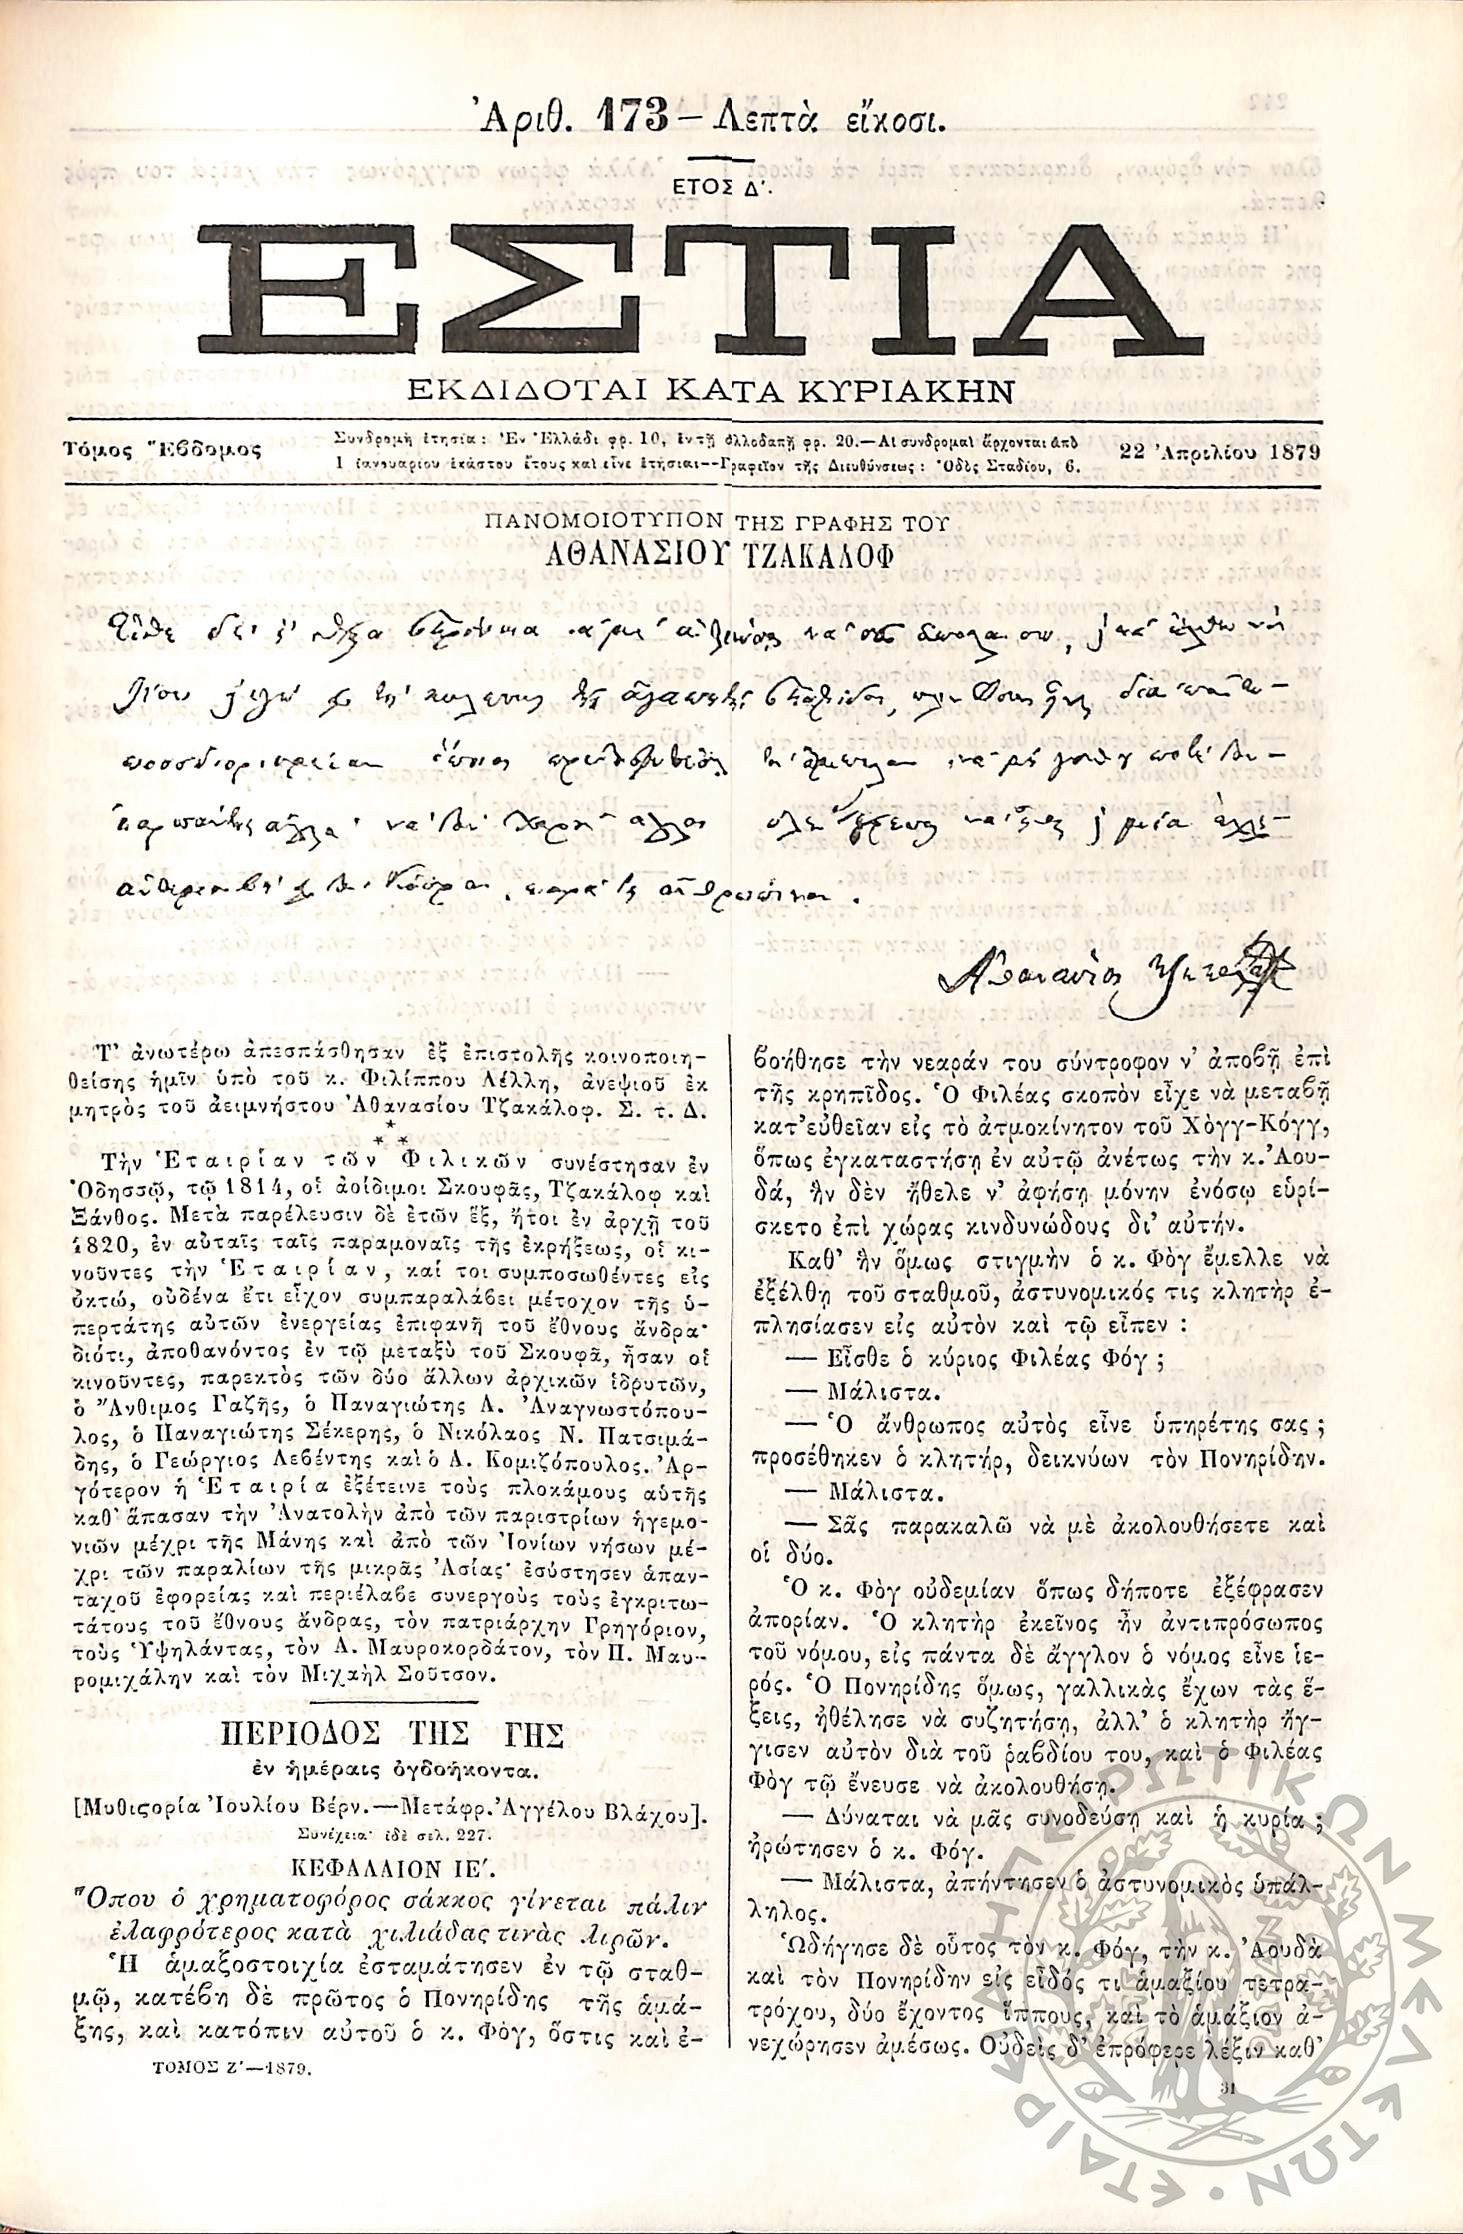 Ἀριθ. 173 — Λεπτὰ εἴκοσι.
ΕΤΟΣ Δʹ.
ΕΣΤΙΑ
ΕΚΔΙΔΟΤΑΙ ΚΑΤΑ ΚΥΡΙΑΚΗΝ
Τόμος Ἕβδομος
Συνδρομὴ ἐτησία: Ἐν Ἑλλάδι φρ. 10, ἐν τῇ ἀλλοδαπῇ φρ. 20.—Αἱ συνδρομαὶ ἄρχονται ἀπὸ
1 ἰανουαρίου ἑκάστου ἔτους καὶ εἶνε ἐτήσιαι—Γραφεῖον τῆς Διευθύνσεως: Ὁδὸς Σταδίου, 6.
22 Ἀπριλίου 1879
ΠΑΝΟΜΟΙΟΤΥΠΟΝ ΤΗΣ ΓΡΑΦΗΣ ΤΟΥ
ΑΘΑΝΑΣΙΟΥ ΤΖΑΚΑΛΟΦ
Τ' ἀνωτέρω ἀπεσπάσθησαν ἐξ ἐπιστολῆς κοινοποιη-
θείσης ἡμῖν ὑπὸ τοῦ κ. Φιλίππου Λέλλη, ἀνεψιοῦ ἐκ
μητρὸς τοῦ ἀειμνήστου Ἀθανασίου Τζακάλοφ. Σ. τ. Δ.
* * *
Τὴν Ἑταιρίαν τῶν Φιλικῶν συνέστησαν ἐν
Ὀδησσῷ, τῷ 1814, οἱ ἀοίδιμοι Σκουφᾶς, Τζακάλοφ καὶ
Ξάνθος. Μετὰ παρέλευσιν δὲ ἐτῶν ἕξ, ἤτοι ἐν ἀρχῇ τοῦ
1820, ἐν αὐταῖς ταῖς παραμοναῖς τῆς ἐκρήξεως, οἱ κι-
νοῦντες τὴν Ἑταιρίαν, καί τοι συμποσωθέντες εἰς
ὀκτώ, οὐδένα ἔτι εἶχον συμπαραλάβει μέτοχον τῆς ὑ-
περτάτης αὐτῶν ἐνεργείας ἐπιφανῆ τοῦ ἔθνους ἄνδρα·
διότι, ἀποθανόντος ἐν τῷ μεταξὺ τοῦ Σκουφᾶ, ἦσαν οἱ
κινοῦντες, παρεκτὸς τῶν δύο ἄλλων ἀρχικῶν ἱδρυτῶν,
ὁ Ἄνθιμος Γαζῆς, ὁ Παναγιώτης Α. Ἀναγνωστόπου-
λος, ὁ Παναγιώτης Σέκερης, ὁ Νικόλαος Ν. Πατσιμά-
δης, ὁ Γεώργιος Λεβέντης καὶ ὁ Α. Κομιζόπουλος. Ἀρ-
γότερον ἡ Ἑταιρία ἐξέτεινε τοὺς πλοκάμους αὑτῆς
καθ' ἅπασαν τὴν Ἀνατολὴν ἀπὸ τῶν παριστρίων ἡγεμο-
νιῶν μέχρι τῆς Μάνης καὶ ἀπὸ τῶν Ἰονίων νήσων μέ-
χρι τῶν παραλίων τῆς μικρᾶς Ἀσίας· ἐσύστησεν ἁπαν-
ταχοῦ ἐφορείας καὶ περιέλαβε συνεργοὺς τοὺς ἐγκριτω-
τάτους τοῦ ἔθνους ἄνδρας, τὸν πατριάρχην Γρηγόριον,
τοὺς Ὑψηλάντας, τὸν Α. Μαυροκορδάτον, τὸν Π. Μαυ-
ρομιχάλην καὶ τὸν Μιχαὴλ Σοῦτσον.
ΠΕΡΙΟΔΟΣ ΤΗΣ ΓΗΣ
ἐν ἡμέραις ὀγδοήκοντα.
[Μυθιστορία Ἰουλίου Βέρν.—Μετάφρ. Ἀγγέλου Βλάχου].
Συνέχεια· ἰδὲ σελ. 227.
ΚΕΦΑΛΑΙΟΝ ΙΕʹ.
Ὅπου ὁ χρηματοφόρος σάκκος γίνεται πάλιν
ἐλαφρότερος κατὰ χιλιάδας τινὰς λιρῶν.
Ἡ ἁμαξοστοιχία ἐσταμάτησεν ἐν τῷ σταθ-
μῷ, κατέβη δὲ πρῶτος ὁ Πονηρίδης τῆς ἁμά-
ξης, καὶ κατόπιν αὐτοῦ ὁ κ. Φόγ, ὅστις καὶ ἐ-
ΤΟΜΟΣ Ζʹ—1879.
βοήθησε τὴν νεαράν του σύντροφον ν' ἀποβῇ ἐπὶ
τῆς κρηπῖδος. Ὁ Φιλέας σκοπὸν εἶχε νὰ μεταβῇ
κατ' εὐθεῖαν εἰς τὸ ἀτμοκίνητον τοῦ Χὸγγ-Κόγγ,
ὅπως ἐγκαταστήσῃ ἐν αὐτῷ ἀνέτως τὴν κ. Ἀου-
δά, ἣν δὲν ἤθελε ν' ἀφήσῃ μόνην ἐνόσῳ εὑρί-
σκετο ἐπὶ χώρας κινδυνώδους δι' αὐτήν.
Καθ' ἣν ὅμως στιγμὴν ὁ κ. Φὸγ ἔμελλε νὰ
ἐξέλθῃ τοῦ σταθμοῦ, ἀστυνομικός τις κλητὴρ ἐ-
πλησίασεν εἰς αὐτὸν καὶ τῷ εἶπεν :
— Εἶσθε ὁ κύριος Φιλέας Φόγ ;
— Μάλιστα.
— Ὁ ἄνθρωπος αὐτὸς εἶνε ὑπηρέτης σας ;
προσέθηκεν ὁ κλητήρ, δεικνύων τὸν Πονηρίδην.
— Μάλιστα.
— Σᾶς παρακαλῶ νὰ μὲ ἀκολουθήσετε καὶ
οἱ δύο.
Ὁ κ. Φὸγ οὐδεμίαν ὅπως δήποτε ἐξέφρασεν
ἀπορίαν. Ὁ κλητὴρ ἐκεῖνος ἦν ἀντιπρόσωπος
τοῦ νόμου, εἰς πάντα δὲ ἄγγλον ὁ νόμος εἶνε ἱε-
ρός. Ὁ Πονηρίδης ὅμως, γαλλικὰς ἔχων τὰς ἕ-
ξεις, ἠθέλησε νὰ συζητήσῃ, ἀλλ' ὁ κλητὴρ ἤγ-
γισεν αὐτὸν διὰ τοῦ ῥαβδίου του, καὶ ὁ Φιλέας
Φὸγ τῷ ἔνευσε νὰ ἀκολουθήσῃ.
— Δύναται νὰ μᾶς συνοδεύσῃ καὶ ἡ κυρία ;
ἠρώτησεν ὁ κ. Φόγ.
— Μάλιστα, ἀπήντησεν ὁ ἀστυνομικὸς ὑπάλ-
ληλος.
Ὡδήγησε δὲ οὗτος τὸν κ. Φόγ, τὴν κ. Ἀουδὰ
καὶ τὸν Πονηρίδην εἰς εἶδός τι ἁμαξίου τετρα-
τρόχου, δύο ἔχοντος ἵππους, καὶ τὸ ἁμάξιον ἀ-
νεχώρησεν ἀμέσως. Οὐδεὶς δ' ἐπρόφερε λέξιν καθ'
31
ΕΤΑΙΡΕΙΑ ΗΠΕΙΡΩΤΙΚΩΝ ΜΕΛΕΤΩΝ